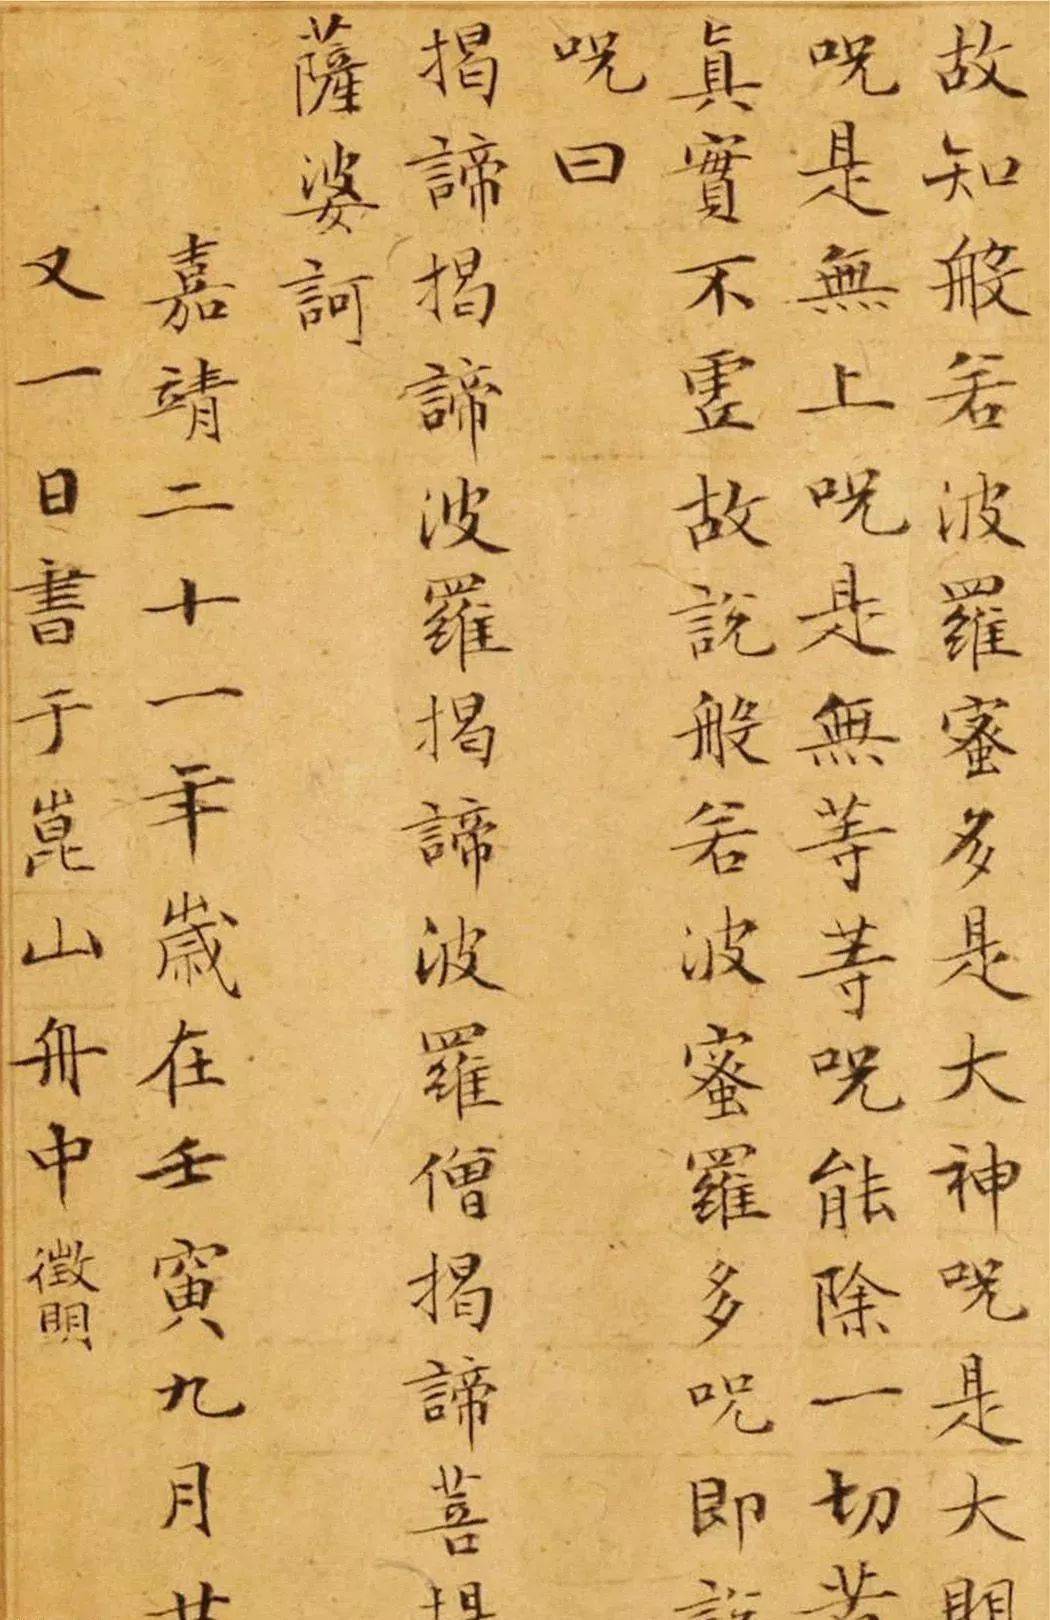 故知般若波羅蜜多是大神呪是大明
呪是無上呪是無等等呪能除一切苦
真實不虛故說般若波蜜羅多呪即說
呪曰
揭諦揭諦波羅揭諦波羅僧揭諦菩提
薩婆訶
嘉靖二十一年歲在壬寅九月廿
又一日書于崑山舟中徵明